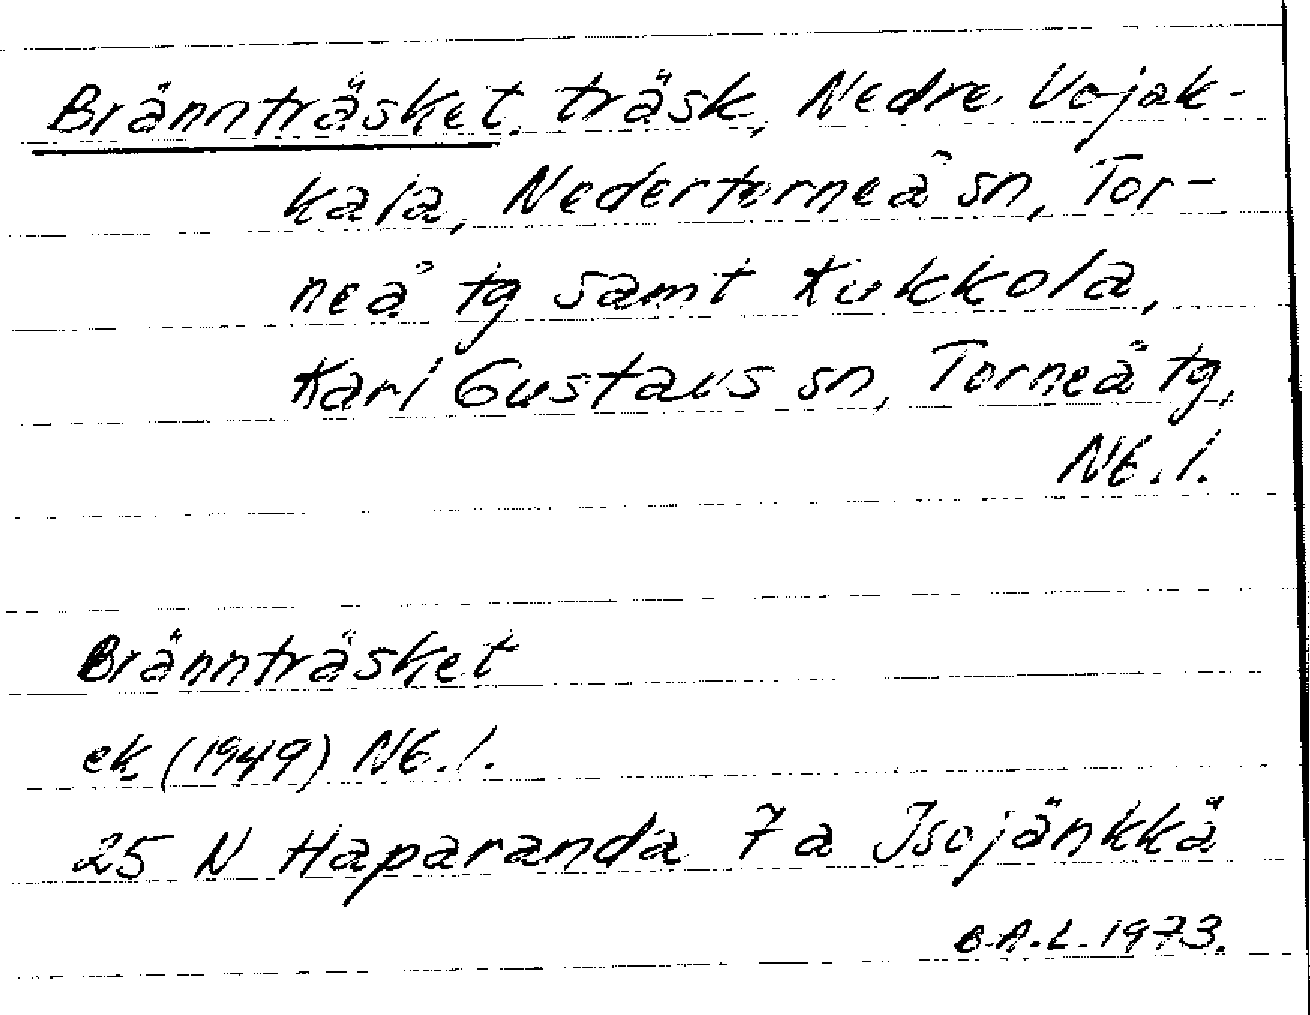 Brännträsket, träsk, Nedre Vojak-
kala, Nedertorneå sn, Tor-
neå tg samt Kukkola,
Karl Gustavs sn, Torneå tg,
Nb. l.
Brännträsket
ek (1949) Nb. l.
25 N Haparanda 7 a Isojänkkä
B.A.L. 1973.